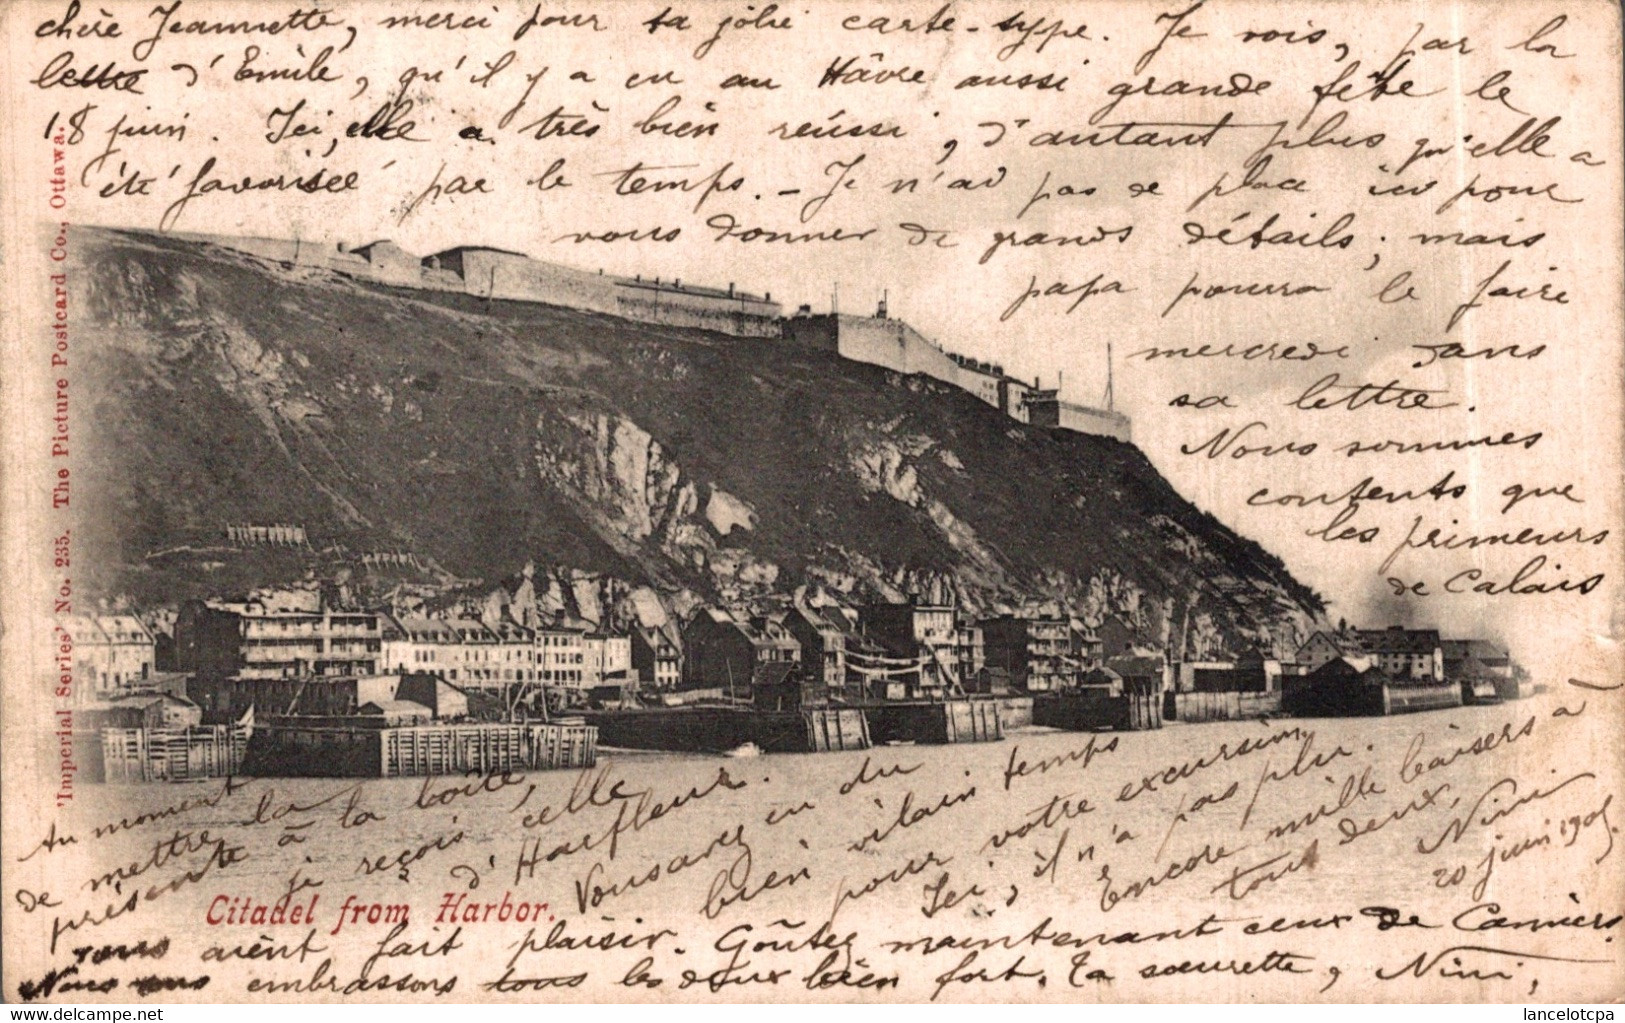 chère Jeannette, merci pour ta jolie carte-type. Je vois, par la
lettre d'Emile, qu'il y a eu au Hâvre aussi grande fête le
18 juin. Ici, elle a très bien réussi, d'autant plus qu'elle a
été favorisée par le temps. – Je n'ai pas de place ici pour
vous donner de grands détails; mais
papa pourra le faire
mercredi dans
sa lettre.
Nous sommes
contents que
les primeurs
de Calais
vous aient fait plaisir. Goûtez maintenant ceux de
Nous vous embrassons tous les deux bien fort. Ta sœurette, Nini,
Au moment
de mettre la
présente à la boîte,
je reçois celle
d'Harfleur.
Vous avez eu du
bien vilain temps
pour votre excursion
Ici, il n'a pas plu.
Encore mille baisers à
tous deux.
Nini
20 juin 1905.
Citadel from Harbor.
'Imperial Series' No. 235. The Picture Postcard Co., Ottawa.
www.delcampe.net
lancelotcpa